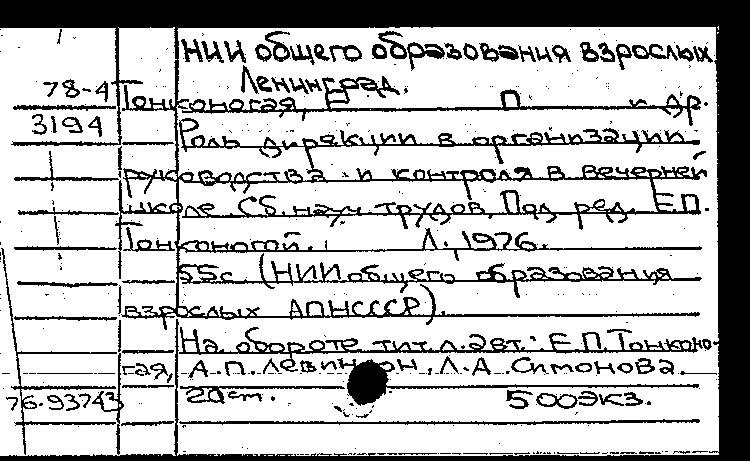 НИИ общего образования взрослых
Ленинград.
78-4 Тонконогая, Е П. и др.
3194 Роль дирекции в организации
руководства и контроля в вечерней
школе. Сб. науч. трудов. Под ред. Е.П.
Тонконогой. Л., 1976.
55с. (НИИ общего образования
взрослых АПНСССР).
На обороте тит. л. авт.: Е.П. Тонконо-
гая, А.П. Левинсон, Л.А. Симонова.
76-93743 20 cm. 500экз.